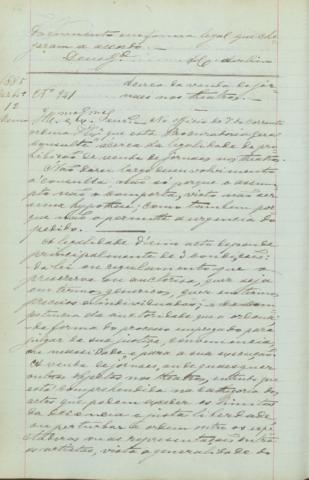 vencimento em forma legal que che-
garam a accordo. —
Deus G.
1885
12
Nº 241
ácerca da venda de jor-
naes nos theatros. —
No officio de 7 do corrente
ordena V. Exª que esta Procuradoria Geral
consulte ácerca da legalidade da pro-
hibição de venda de jornaes nos theatros.
Não darei largo desenvolvimento
á consulta não só porque o assum-
pto não o comporta, visto não ser
uma hypothese, como tambem por
que não o permitte a urgencia do
pedido. —
A legalidade d'um acto depende
principalmente de 3 condições:
da lei ou regulamento que o
prescreva ou auctorise, quer seja
em termos genericos, quer em termos
precisos e individuados; — da com-
petencia da auctoridade que o ordena
da forma do processo empregado para
julgar da sua justiça, conveniencia,
ou necessidade, e para a sua execução
A venda de jornaes, ou de quaesquer
outros objectos nos theatros, entendo que
está comprehendida na cathegoria dos
actos que podem exceder os limites
da decencia e justa liberdade
ou perturbar a ordem entre os espe-
ctadores ou as representações entre
os artistas, vista a generalidade do